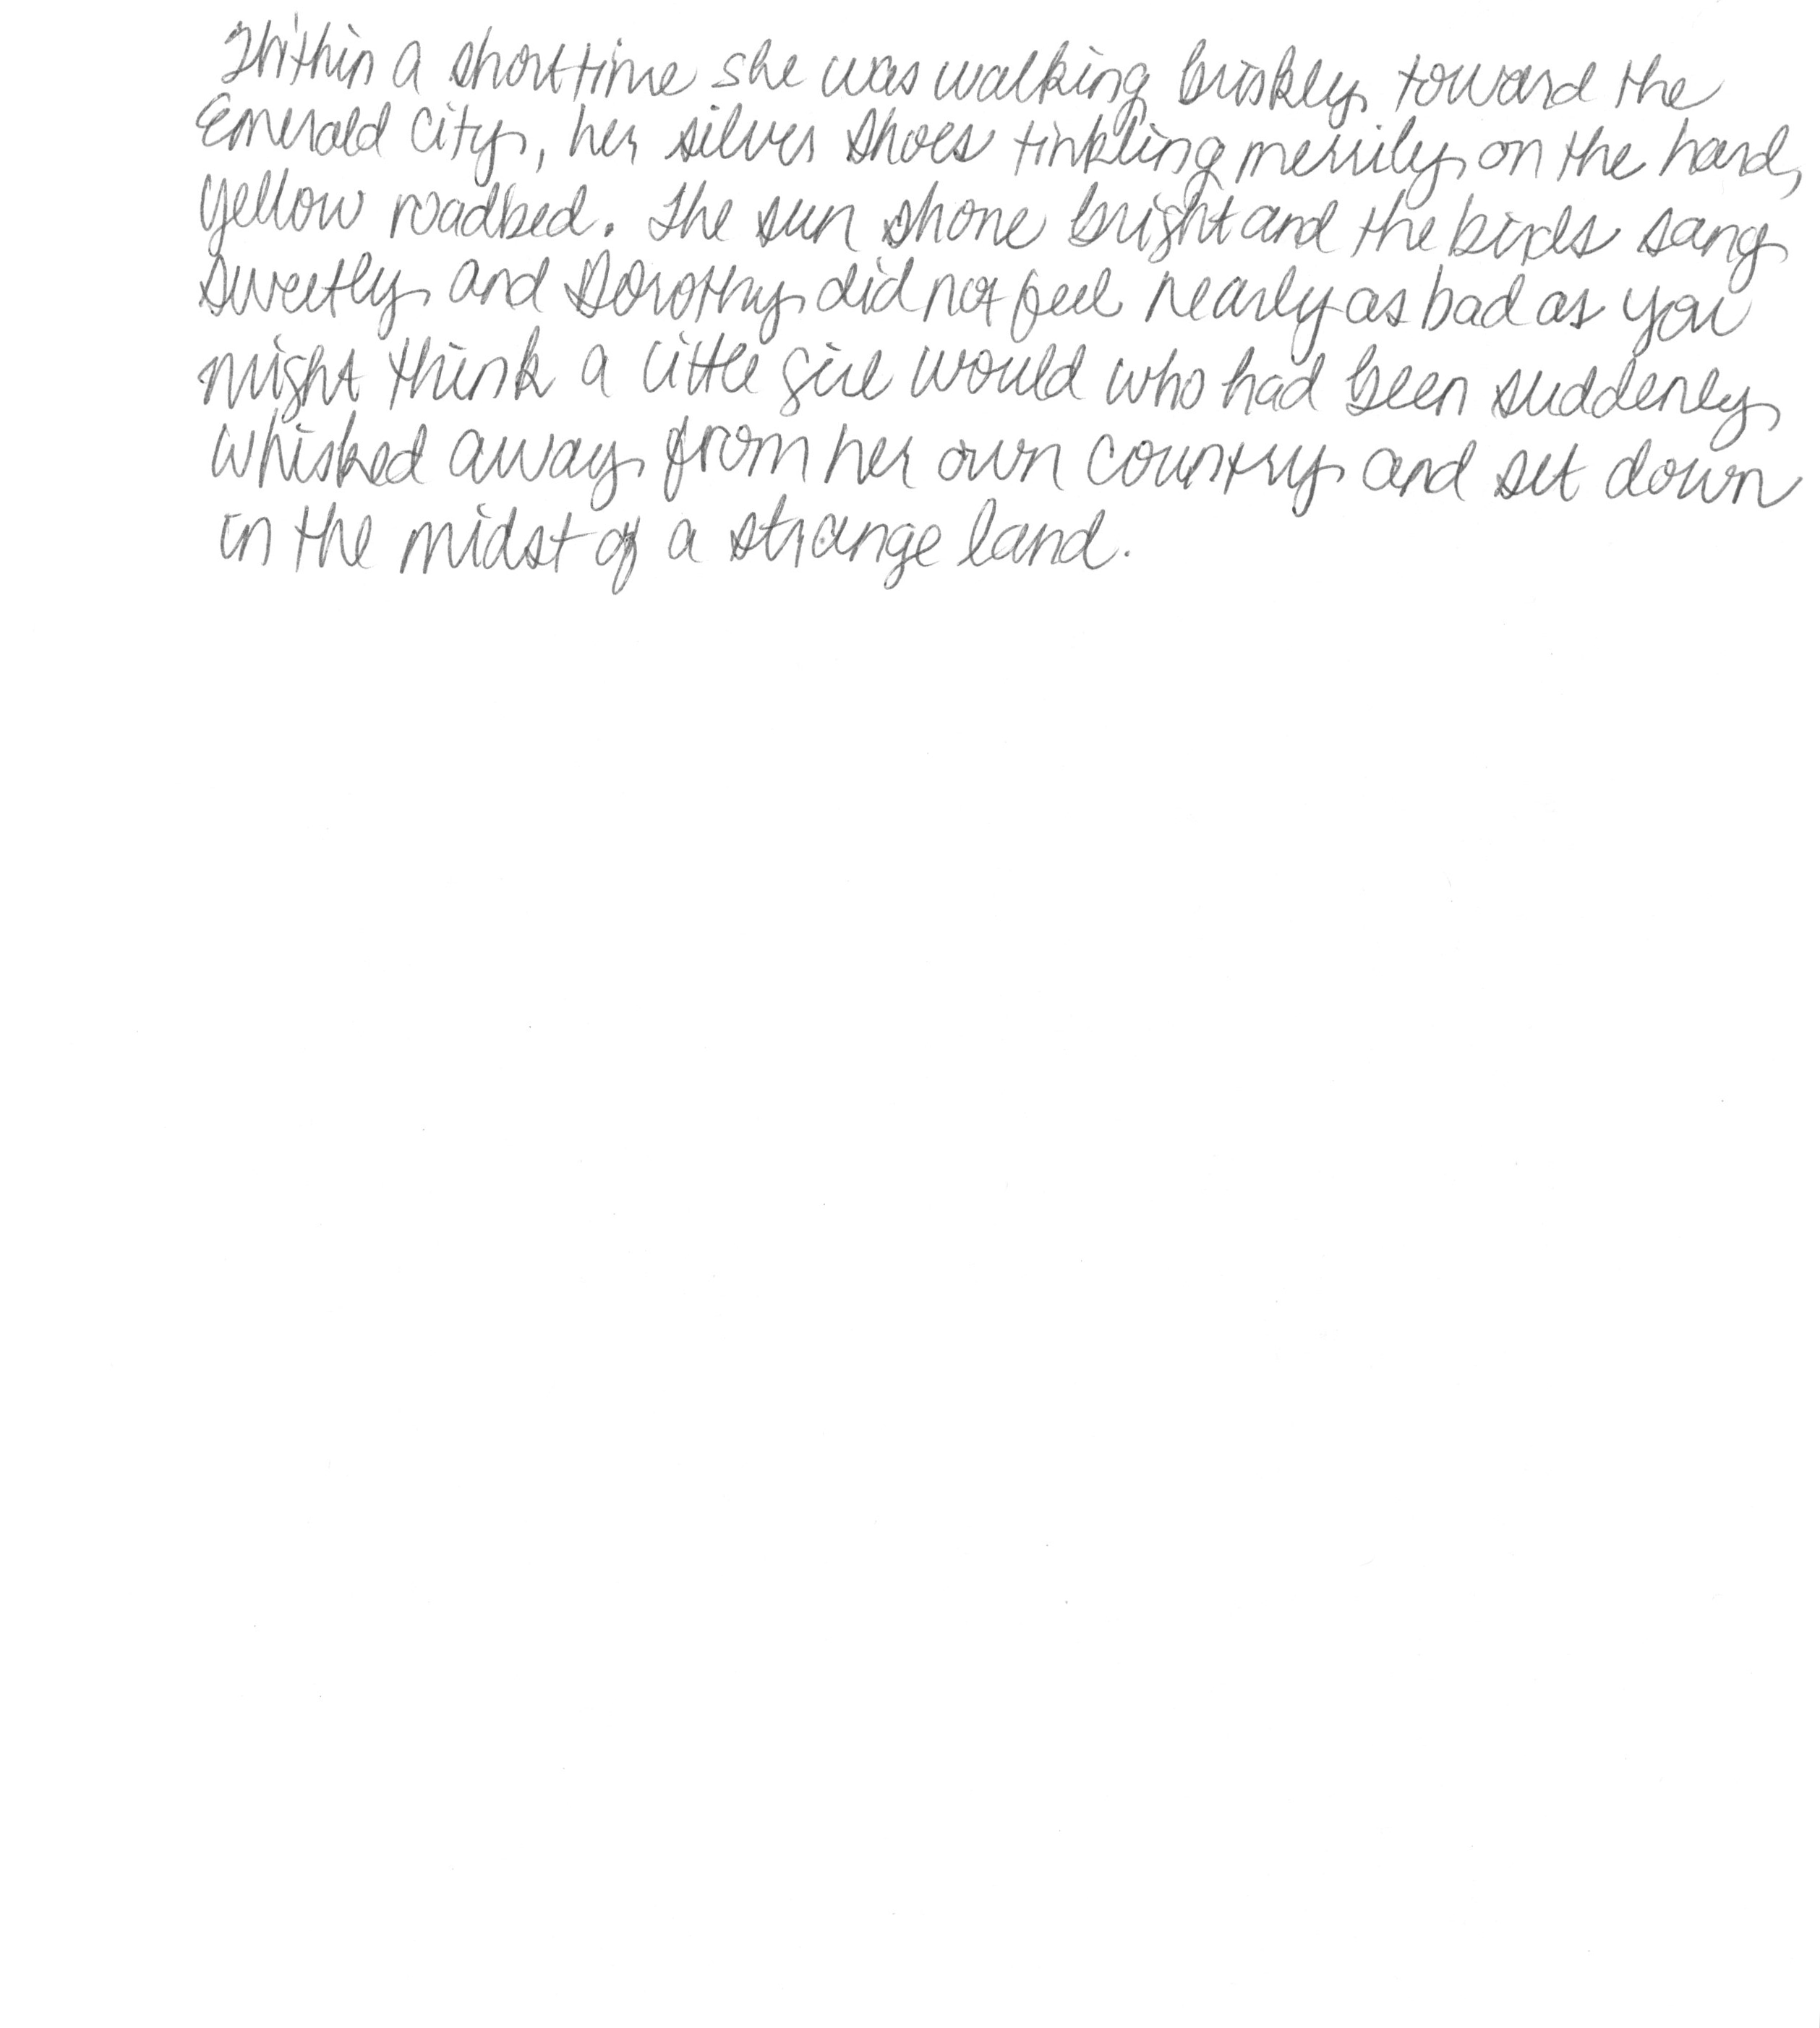 Within a short time she was walking briskly toward the
Emerald City, her silver shoes tinkling merrily on the hard,
yellow roadbed. The sun shone bright and the birds sang
sweetly and Dorothy did not feel nearly as bad as you
might think a little girl would who had been suddenly
whisked away from her own country and set down
in the midst of a strange land.